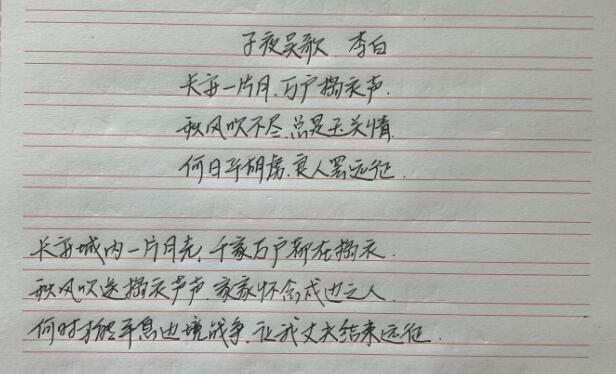 子夜吴歌 李白
长安一片月,万户捣衣声.
秋风吹不尽,总是玉关情.
何日平胡虏,良人罢远征.
长安城内一片月光,千家万户都在捣衣.
秋风吹送捣衣声声,家家怀念戍边之人.
何时才能平息边境战争,让我丈夫结束远征.